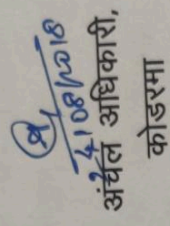 24/08/2018
अंचल अधिकारी,
कोडरमा